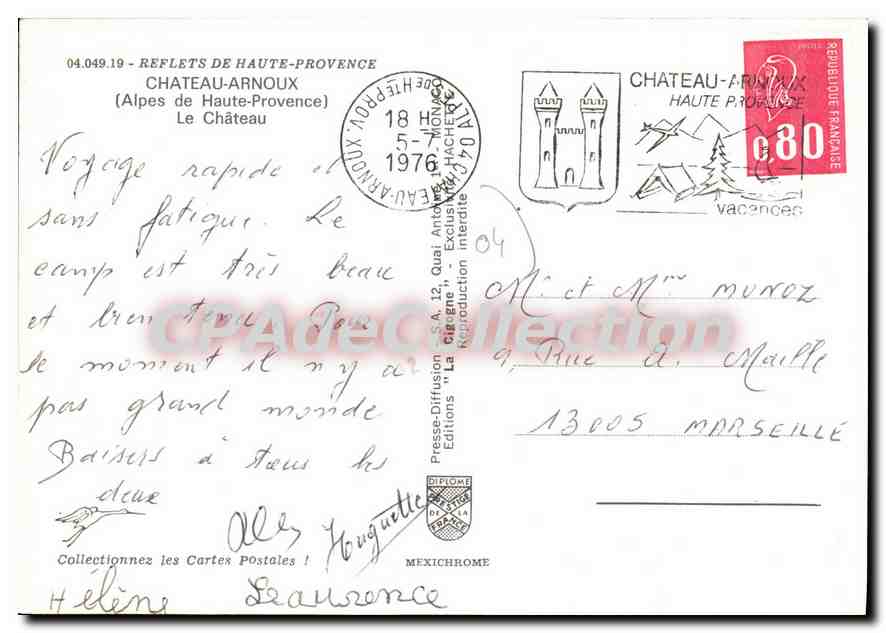 04.049.19 - REFLETS DE HAUTE-PROVENCE
CHATEAU-ARNOUX
(Alpes de Haute-Provence)
Le Château
Voyage rapide et
sans fatigue. Le
camp est très beau
et bien tenu. Pour
le moment il n'y a
pas grand monde
Baisers à tous les
deux
Huguette
Collectionnez les Cartes Postales !
Hélène Leaurence
18 H
5-7
1976
04 CHATEAU-ARNOUX
ALPES DE HTE PROV.
CHATEAU-ARNOUX
HAUTE PROVENCE
vacances
REPUBLIQUE FRANÇAISE
0,80
Presse-Diffusion - S.A. 12, Quai Antoine 1er - MONACO
Editions "La Cigogne" - Exclusivité HACHETTE
Reproduction interdite
04
Mr et Mme MUNOZ
9, Rue A. Maille
13005 MARSEILLE
DIPLOME
PRESTIGE
DE LA
FRANCE
MEXICHROME
CPAdeCollection